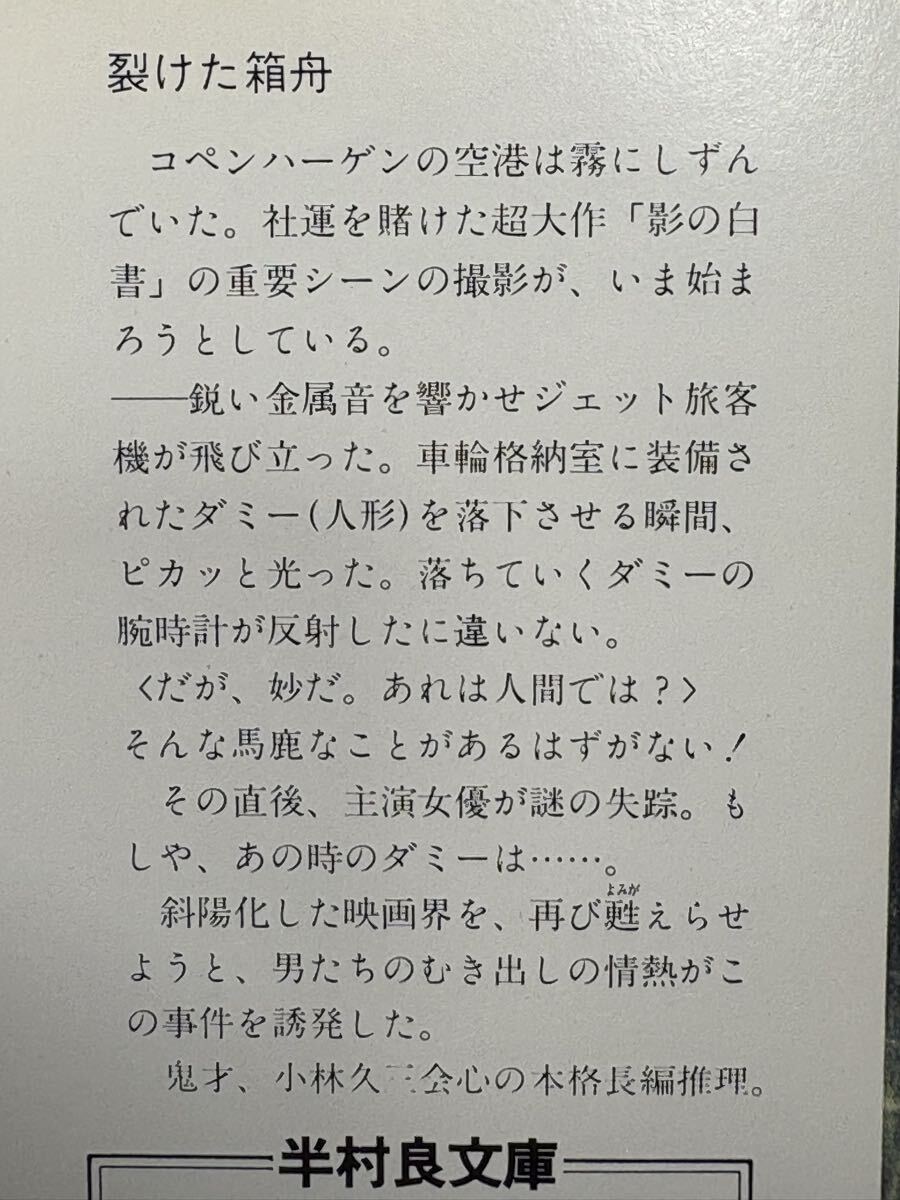 裂けた箱舟
コペンハーゲンの空港は霧にしずん
でいた。社運を賭けた超大作「影の白
書」の重要シーンの撮影が、いま始ま
ろうとしている。
──鋭い金属音を響かせジェット旅客
機が飛び立った。車輪格納室に装備さ
れたダミー(人形)を落下させる瞬間、
ピカッと光った。落ちていくダミーの
腕時計が反射したに違いない。
〈だが、妙だ。あれは人間では?〉
そんな馬鹿なことがあるはずがない!
その直後、主演女優が謎の失踪。も
しや、あの時のダミーは……。
よみが
斜陽化した映画界を、再び甦えらせ
ようと、男たちのむき出しの情熱がこ
の事件を誘発した。
鬼才、小林久三会心の本格長編推理。
半村良文庫